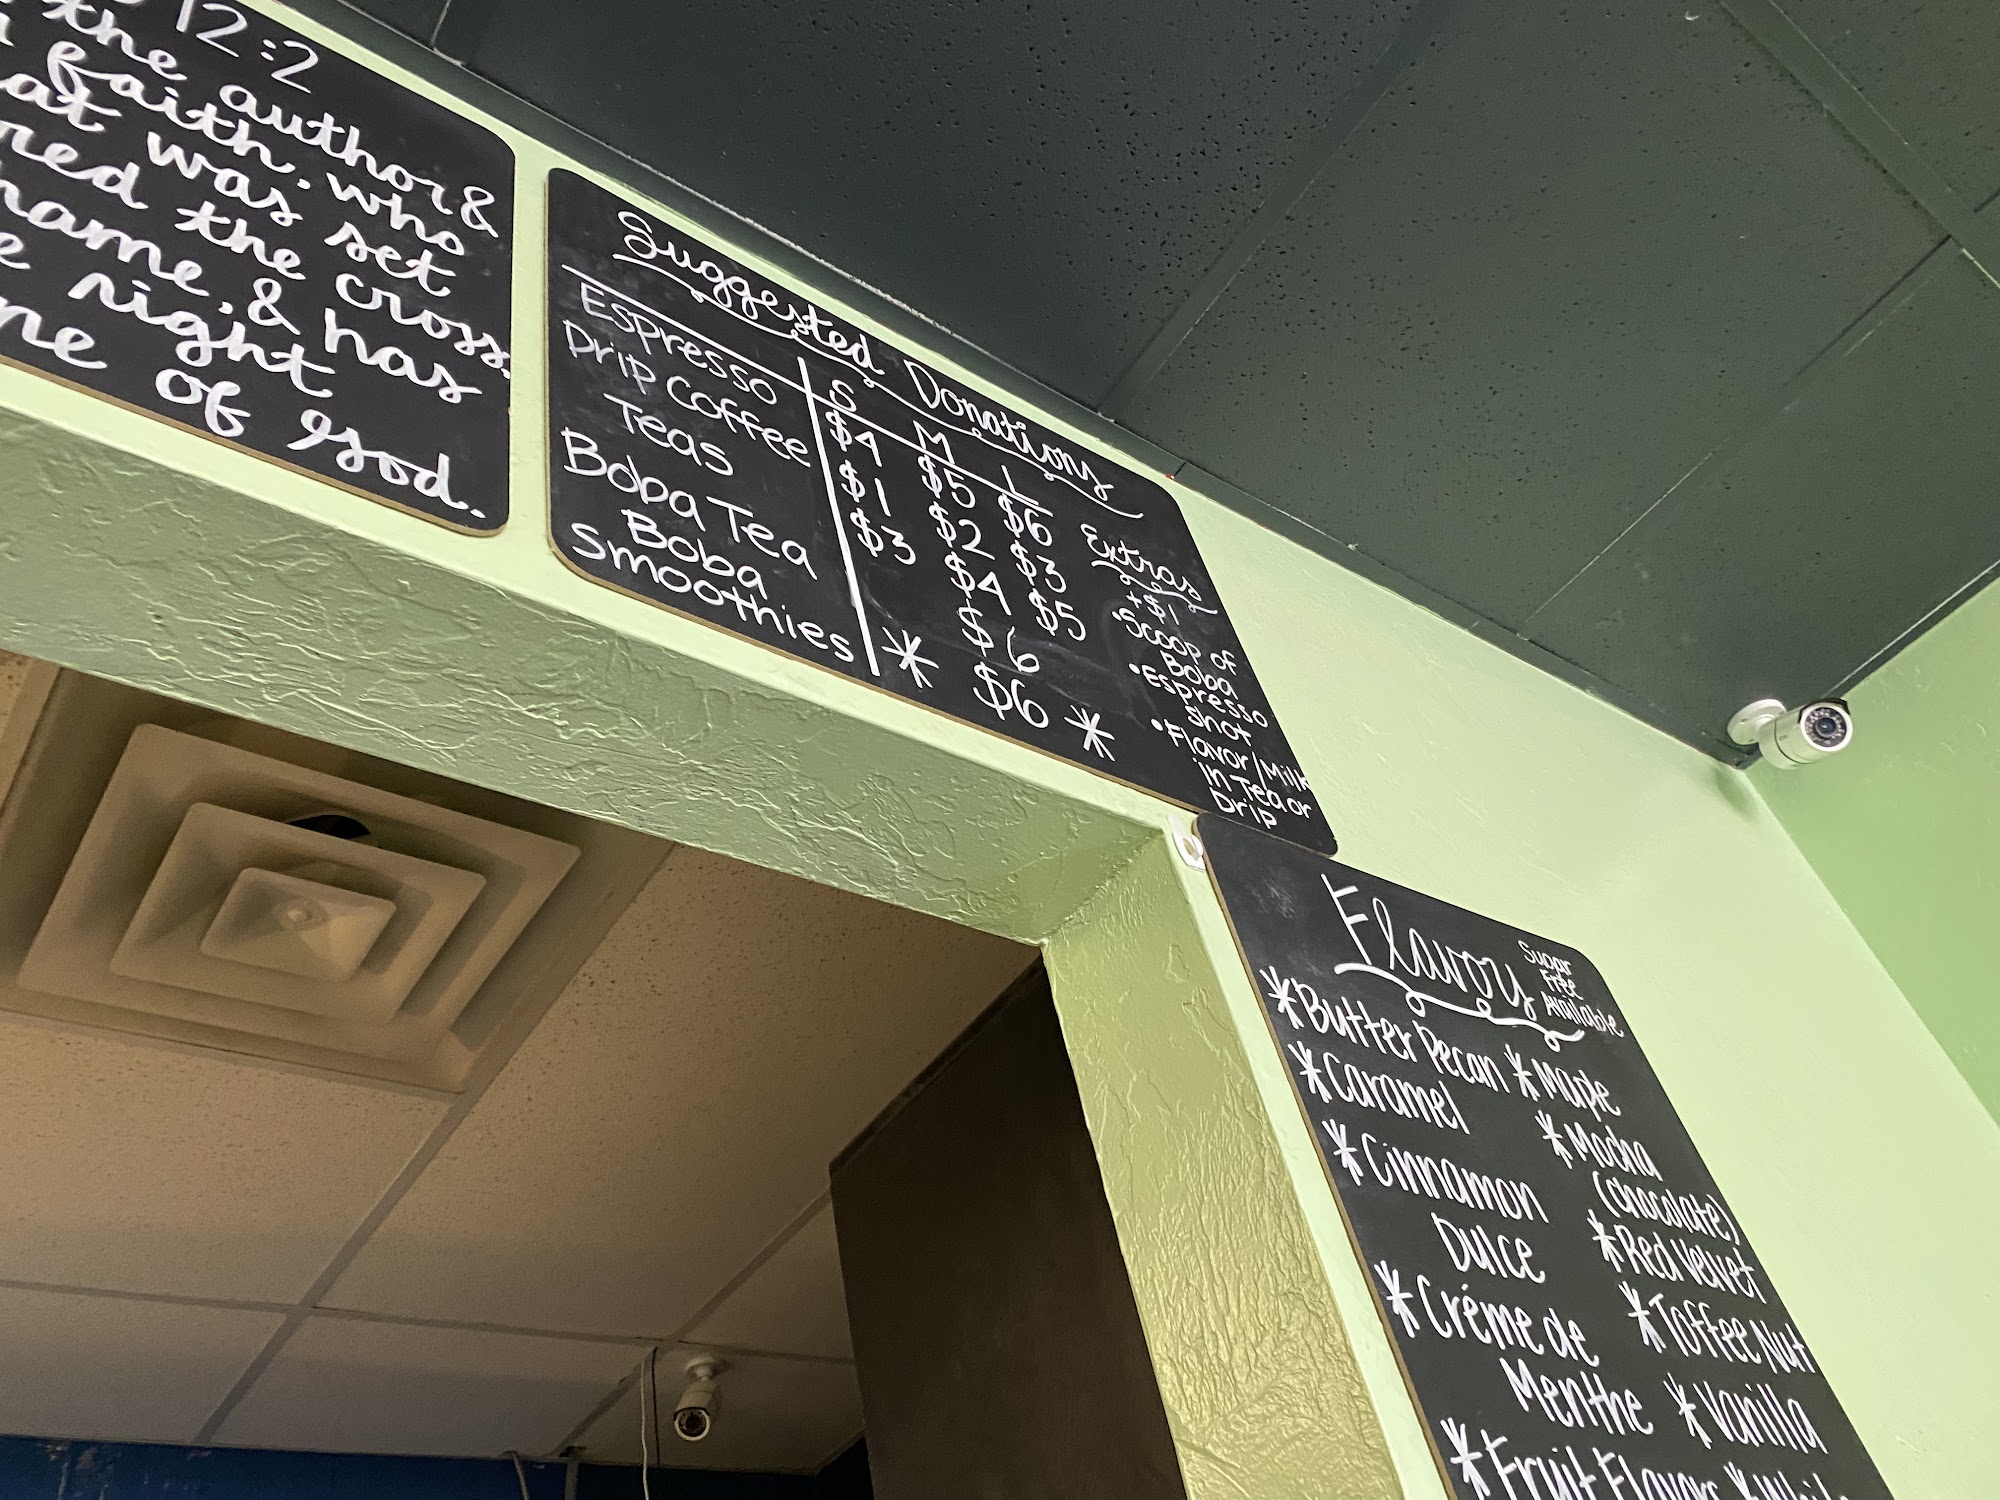 12:2
the author &
faith. who
at was set
red the cross.
hame, & has
e right
ne of God.
Suggested Donations
S M L
Espresso $4 $5 $6
Drip Coffee $1 $2 $3
Teas $3 $4 $5
Boba Tea $6
Boba
Smoothies * $6 *
Extras
+$1
•Scoop of
Boba
•Espresso
Shot
•Flavor/Milk
in Tea or
Drip
Flavory
Sugar
Free
Available
*Butter Pecan
*Caramel
*Cinnamon
Dulce
*Créme de
Menthe
*Fruit Flavors
*Maple
*Mocha
(chocolate)
*Red Velvet
*Toffee Nut
*Vanilla